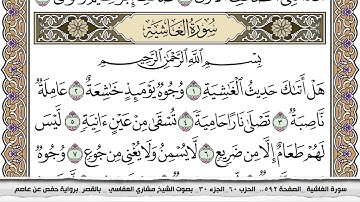 سُورَةُ الغَاشِيَةِ
بِسْمِ ٱللَّهِ ٱلرَّحْمَٰنِ ٱلرَّحِيمِ
هَلْ أَتَىٰكَ حَدِيثُ ٱلْغَٰشِيَةِ ١ وُجُوهٌ يَوْمَئِذٍ خَٰشِعَةٌ ٢ عَامِلَةٌ
نَّاصِبَةٌ ٣ تَصْلَىٰ نَارًا حَامِيَةً ٤ تُسْقَىٰ مِنْ عَيْنٍ ءَانِيَةٍ ٥ لَّيْسَ
لَهُمْ طَعَامٌ إِلَّا مِن ضَرِيعٍ ٦ لَّا يُسْمِنُ وَلَا يُغْنِى مِن جُوعٍ ٧ وُجُوهٌ
سورة الغاشية .. الصفحة ٥٩٢ .. الحزب ٦٠ .. الجزء ٣٠ .. بصوت الشيخ مشاري العفاسي .. بالقصر برواية حفص عن عاصم